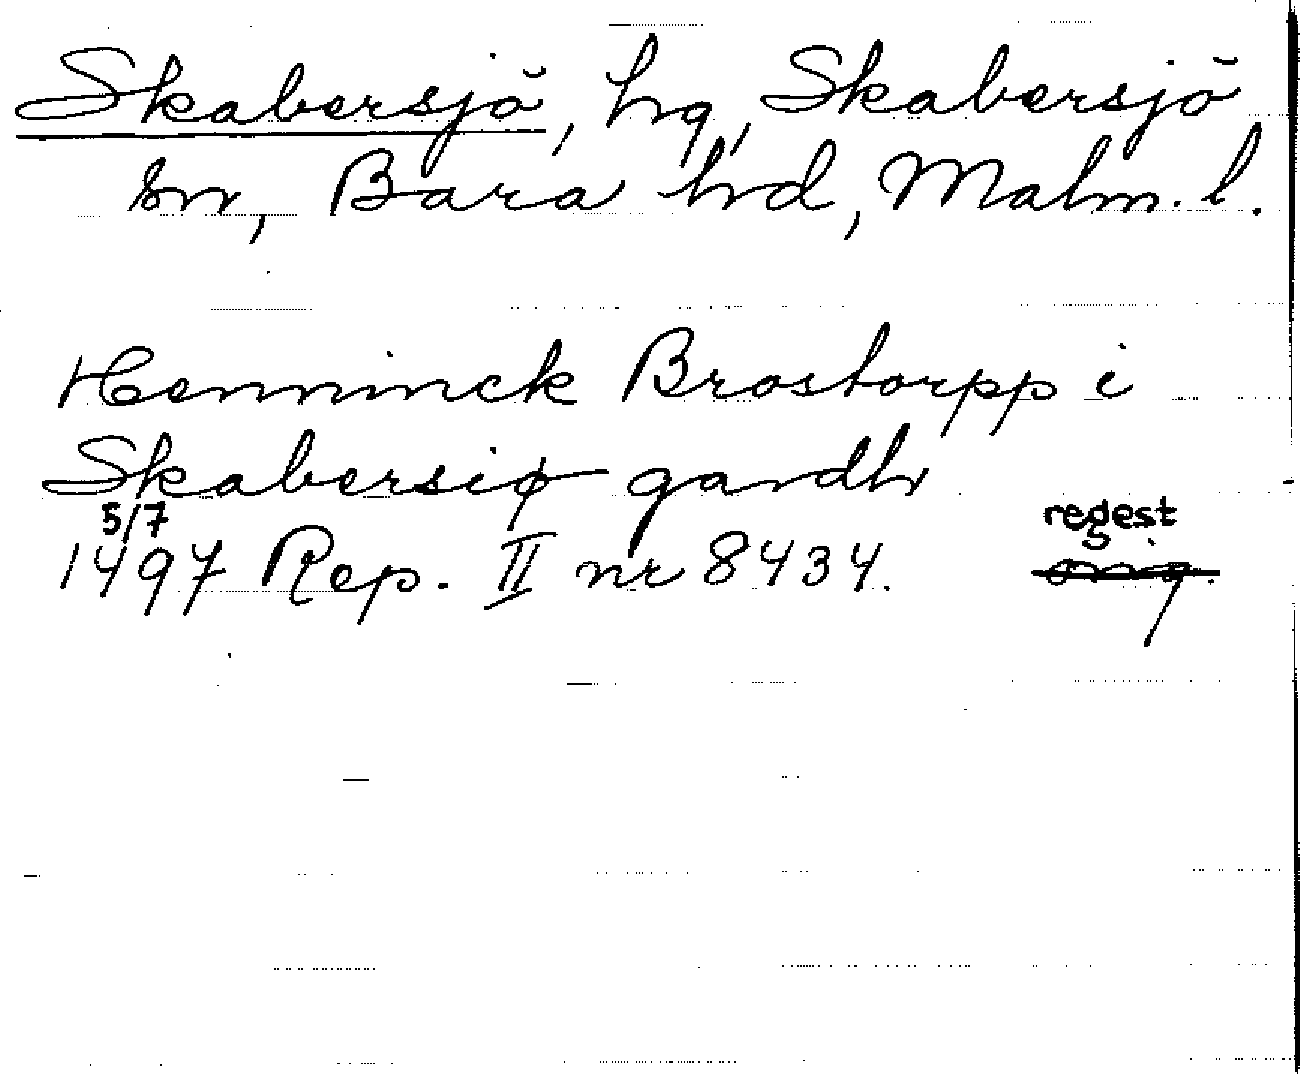 Skabersjö, hg, Skabersjö
sn, Bara hd, Malm. l.
Henninck Brostorpp i
Skabersiø gardh
5/7
regest
1497 Rep. II nr 8434.